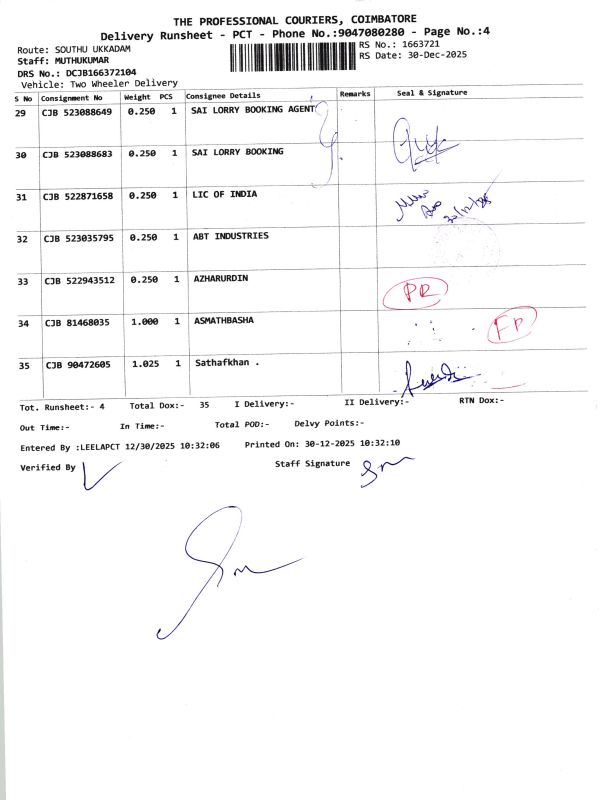 THE PROFESSIONAL COURIERS, COIMBATORE
Delivery Runsheet - PCT - Phone No.:9047080280 - Page No.:4
Route: SOUTHU UKKADAM
RS No.: 1663721
Staff: MUTHUKUMAR
RS Date: 30-Dec-2025
DRS No.: DCJB166372104
Vehicle: Two Wheeler Delivery
S No Consignment No Weight PCS Consignee Details Remarks Seal & Signature
29 CJB 523088649 0.250 1 SAI LORRY BOOKING AGENT
30 CJB 523088683 0.250 1 SAI LORRY BOOKING
31 CJB 522871658 0.250 1 LIC OF INDIA
30/12/25
32 CJB 523035795 0.250 1 ABT INDUSTRIES
33 CJB 522943512 0.250 1 AZHARURDIN PR
34 CJB 81468035 1.000 1 ASMATHBASHA FP
35 CJB 90472605 1.025 1 Sathafkhan .
Tot. Runsheet:- 4 Total Dox:- 35 I Delivery:- II Delivery:- RTN Dox:-
Out Time:- In Time:- Total POD:- Delvy Points:-
Entered By :LEELAPCT 12/30/2025 10:32:06 Printed On: 30-12-2025 10:32:10
Verified By Staff Signature